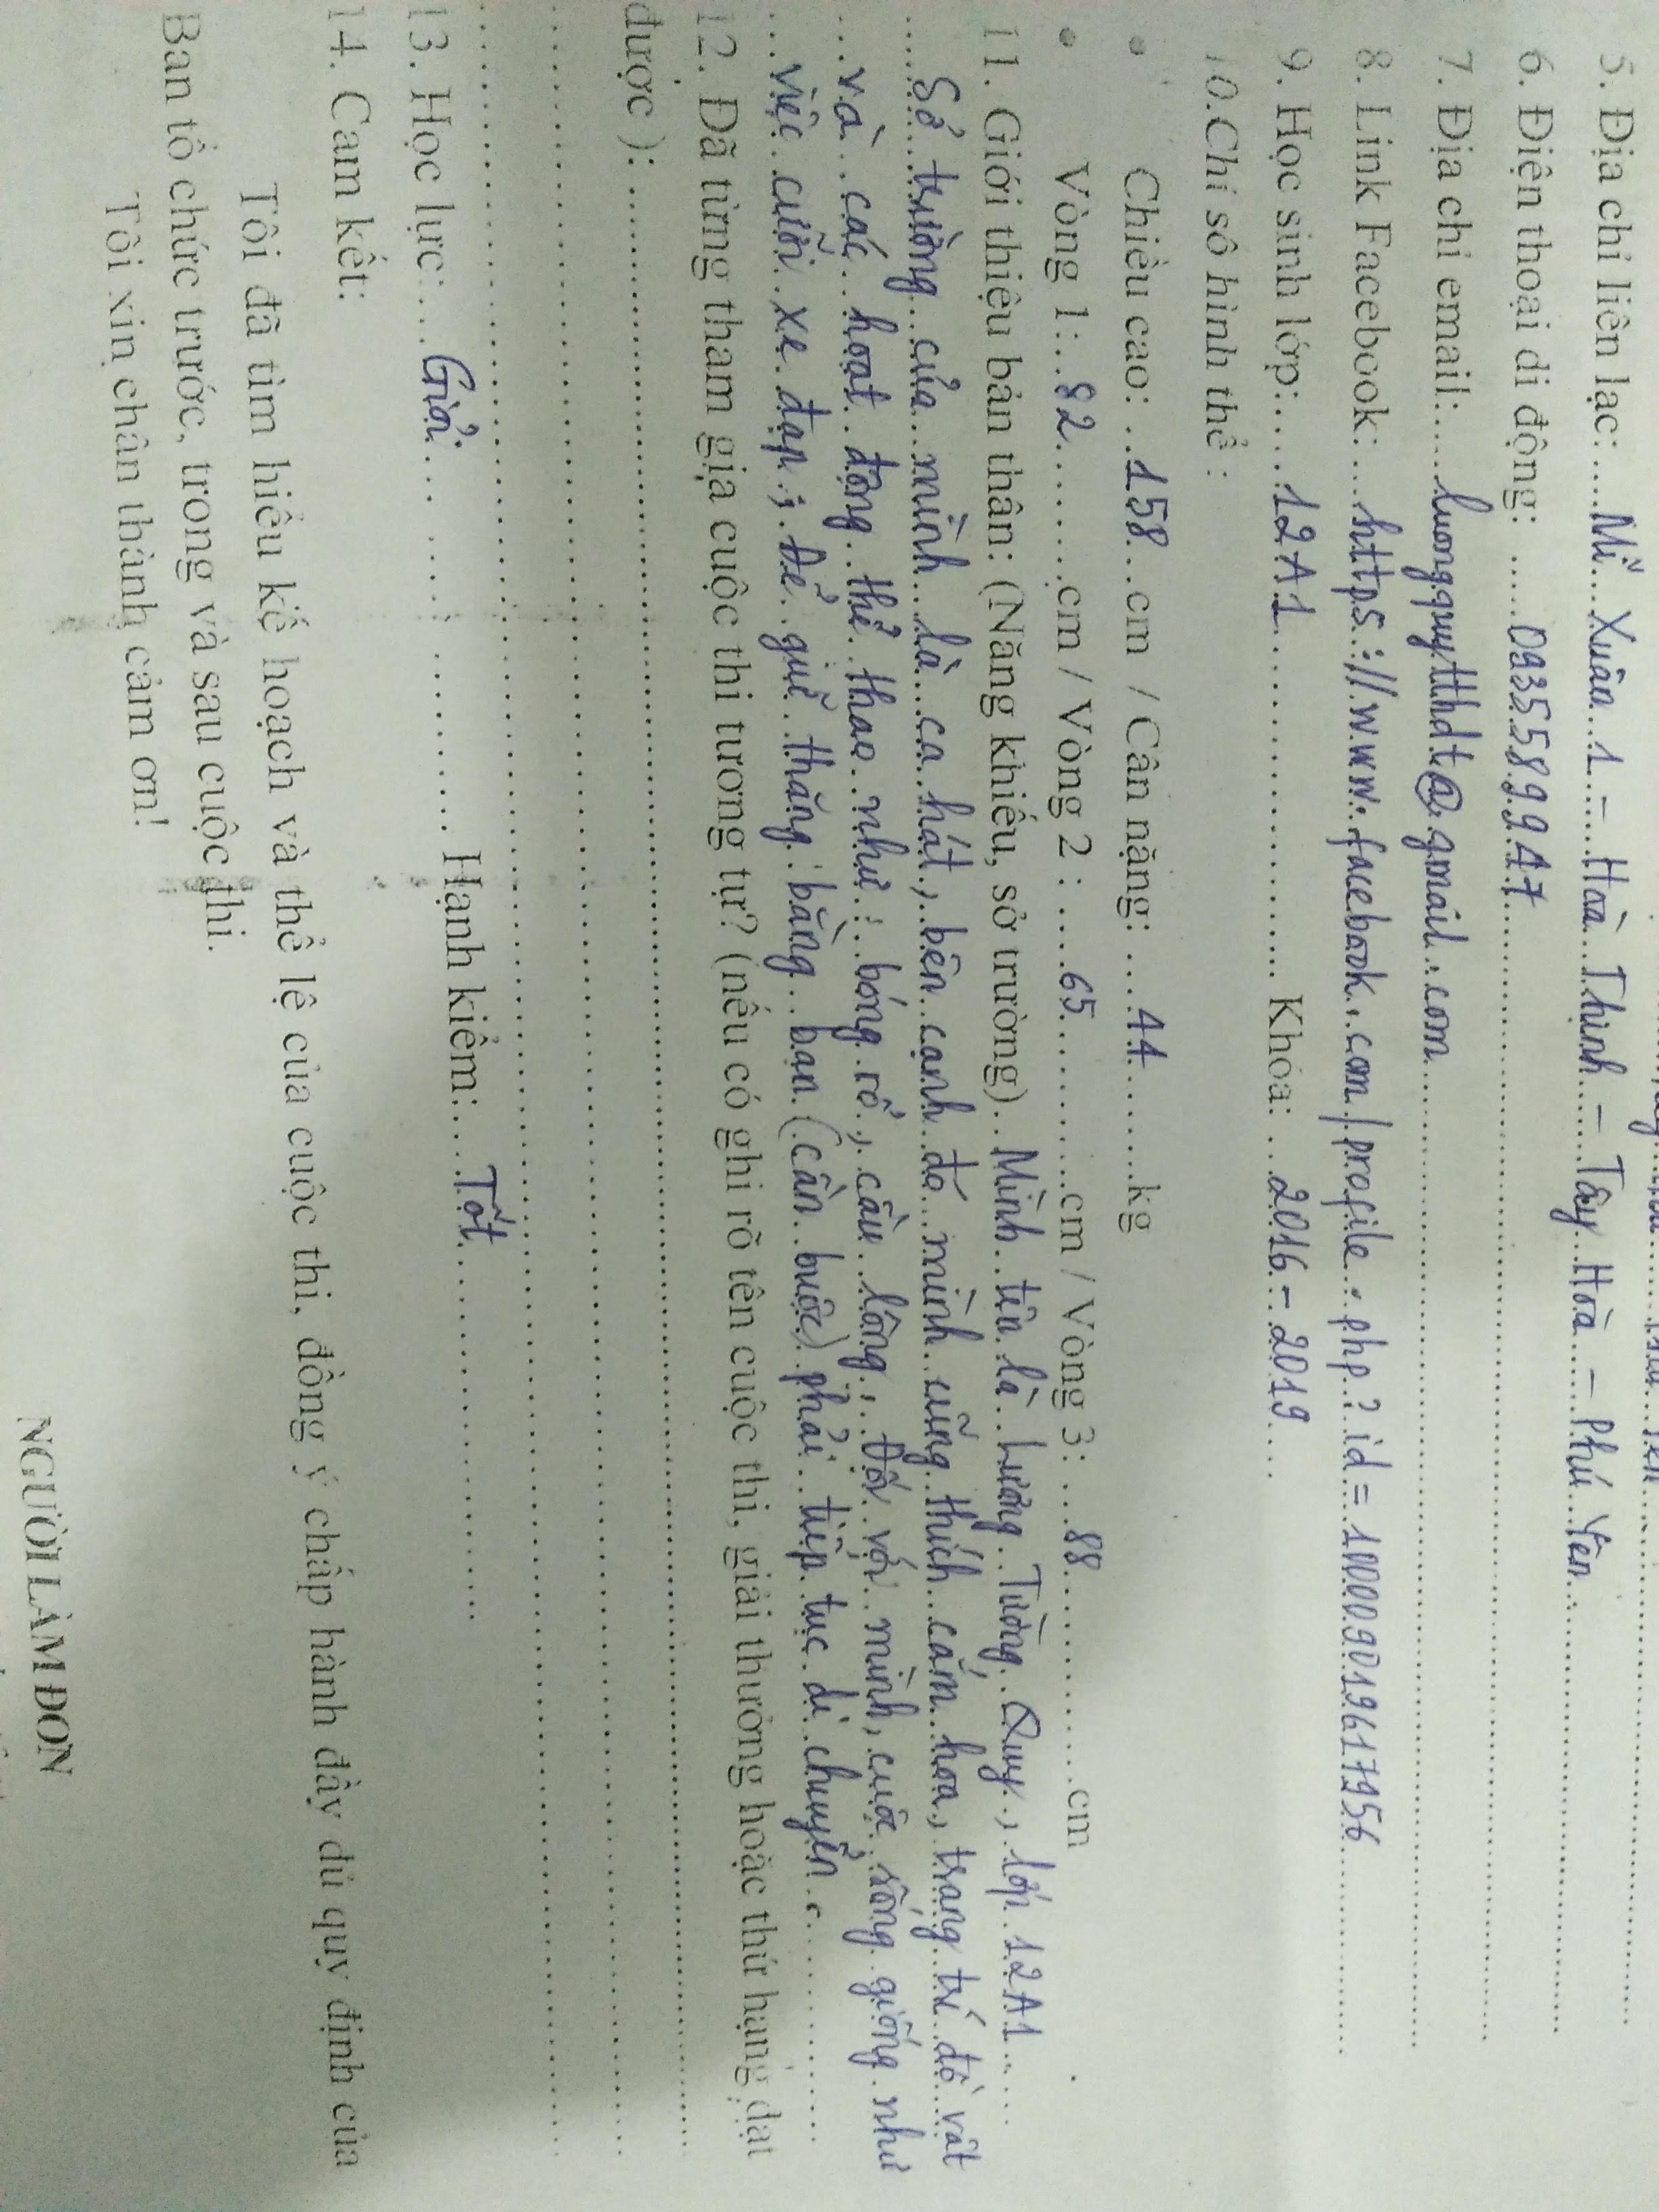 5. Địa chỉ liên lạc: ....Mĩ Xuân 1 - Hoà Thịnh - Tây Hoà - Phú Yên
6. Điện thoại di động: .....0935589947
7. Địa chỉ email:.....luongquytthdt@gmail.com
8. Link Facebook: ...https://www.facebook.com/profile.php?id=100009019617956
9. Học sinh lớp:.....12A1 Khóa: ...2016 - 2019....
10.Chỉ số hình thể :
Chiều cao: ..158...cm / Cân nặng: ....44........kg
Vòng 1:..82........cm / Vòng 2 : ....65............cm / Vòng 3: ...88...............cm
11. Giới thiệu bản thân: (Năng khiếu, sở trường)..Mình tên là Lương Tường Quy, lớp 12A1
Sở trường của mình là ca hát, bên cạnh đó mình cũng thích cắm hoa, trang trí đồ vật
và các hoạt động thể thao như: bóng rổ, cầu lông. Đối với mình, cuộc sống giống như
việc cưỡi xe đạp; Để giữ thăng bằng bạn (cần buộc) phải tiếp tục di chuyển.
12. Đã từng tham gia cuộc thi tương tự? (nếu có ghi rõ tên cuộc thi, giải thưởng hoặc thứ hạng đạt
được ):
13. Học lực:...Giỏi Hạnh kiểm:....Tốt
14. Cam kết:
Tôi đã tìm hiểu kế hoạch và thể lệ của cuộc thi, đồng ý chấp hành đầy đủ quy định của
Ban tổ chức trước, trong và sau cuộc thi.
Tôi xin chân thành cảm ơn!
NGƯỜI LÀM ĐƠN